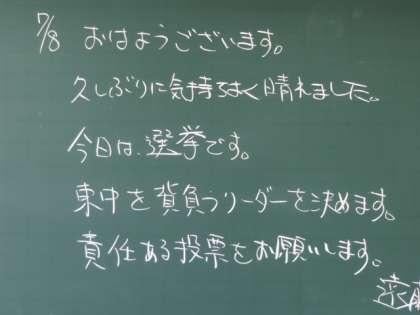 7/8 おはようございます。
久しぶりに気持ちよく晴れました。
今日は、選挙です。
東中を背負うリーダーを決めます。
責任ある投票をお願いします。